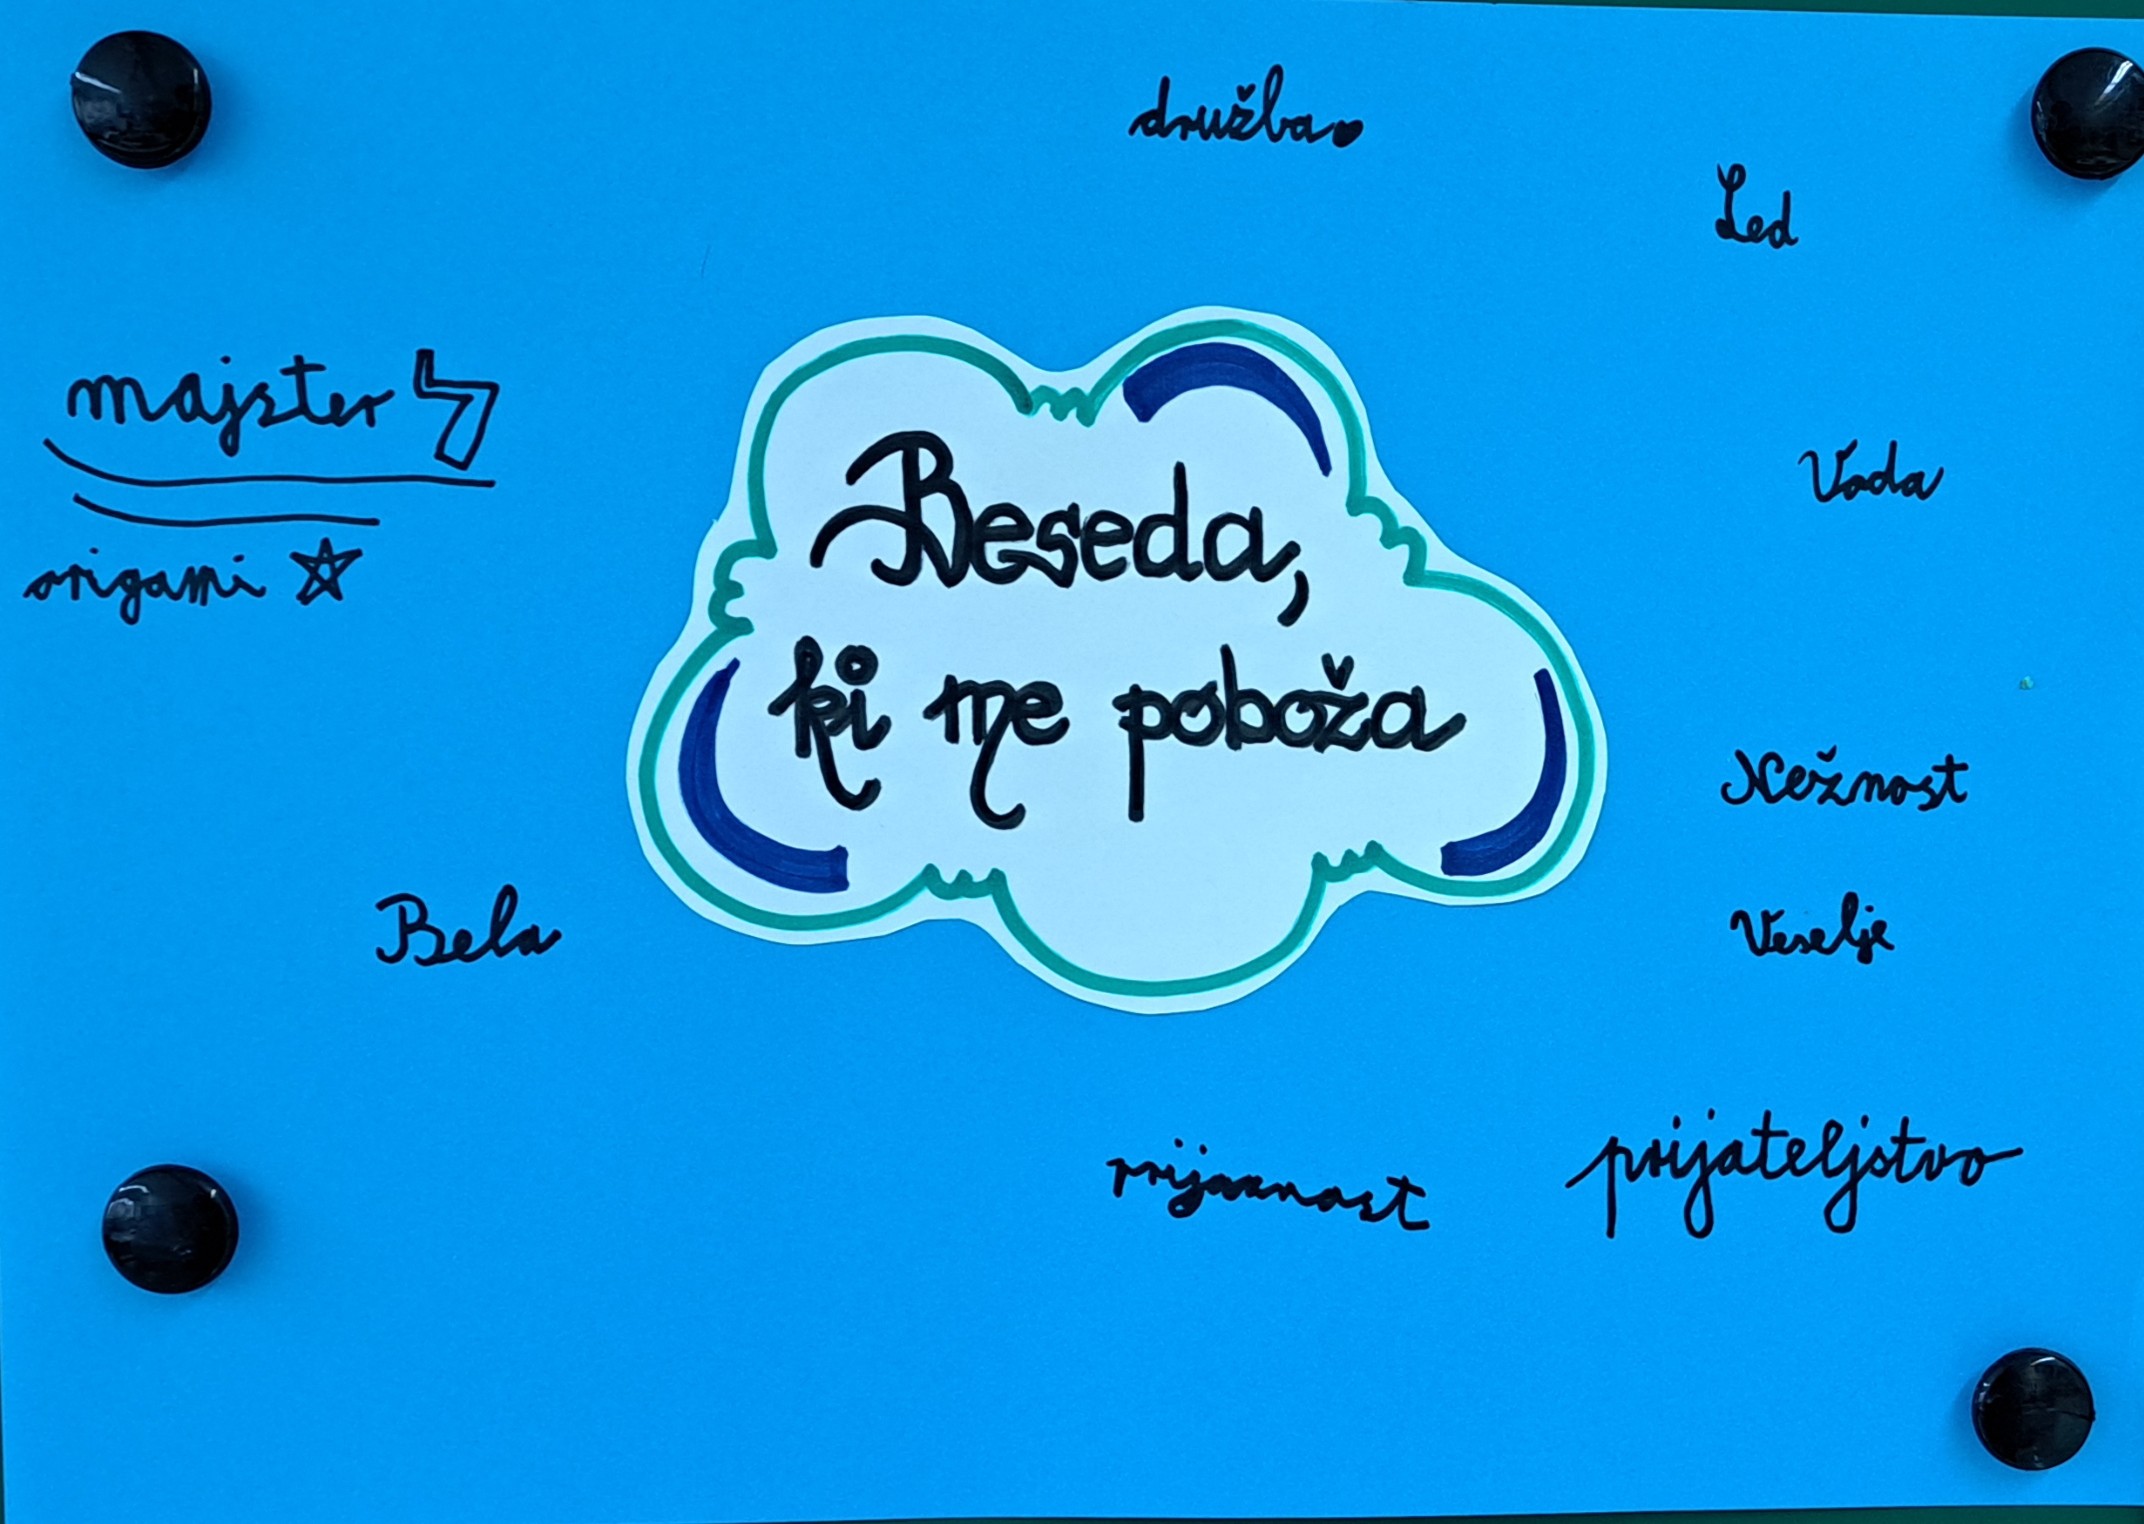 družba
Led
majster
origami
Beseda,
ki me poboža
Voda
Nežnost
Veselje
Bela
prijaznost
prijateljstvo